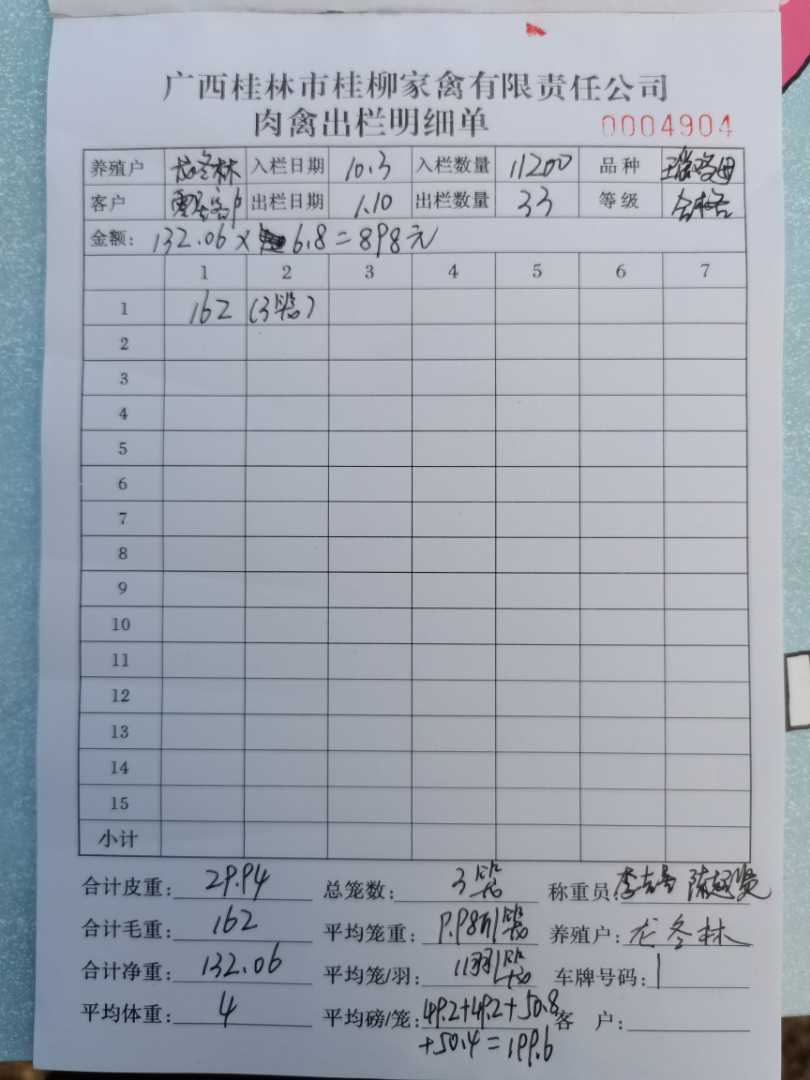 广西桂林市桂柳家禽有限责任公司
肉禽出栏明细单 0004904
养殖户 龙冬林 入栏日期 10.3 入栏数量 11200 品种
客户 客户 出栏日期 1.10 出栏数量 33 等级 合格
金额: 132.06 × 6.8 = 898元
1 2 3 4 5 6 7
1 162 (3笼)
2
3
4
5
6
7
8
9
10
11
12
13
14
15
小计
合计皮重: 29.94 总笼数: 3笼 称重员:
合计毛重: 162 平均笼重: 9.98斤/笼 养殖户: 龙冬林
合计净重: 132.06 平均笼/羽: 11羽/笼 车牌号码:
平均体重: 4 平均磅/笼: 49.2+49.2+50.8 客 户:
+50.4=199.6